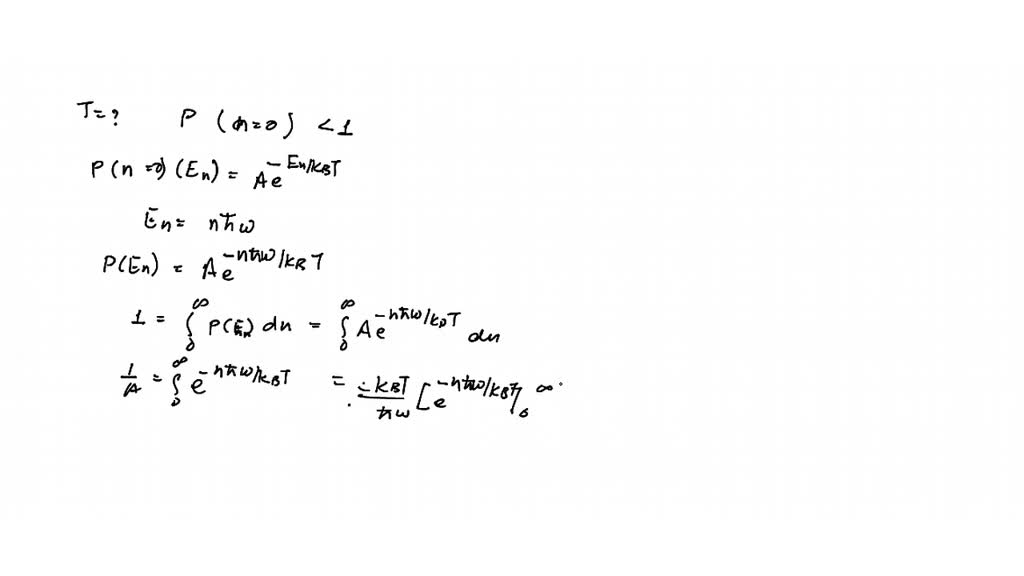 T=? P (n=0) <1
P(n=0)(En) = Ae^-En/kBT
En= nħω
P(En) = Ae^-nħω/kBT
1 = ∫0^∞ P(En) dn = ∫0^∞ Ae^-nħω/kBT dn
1/A = ∫0^∞ e^-nħω/kBT = -kBT/ħω [e^-nħω/kBT]0^∞